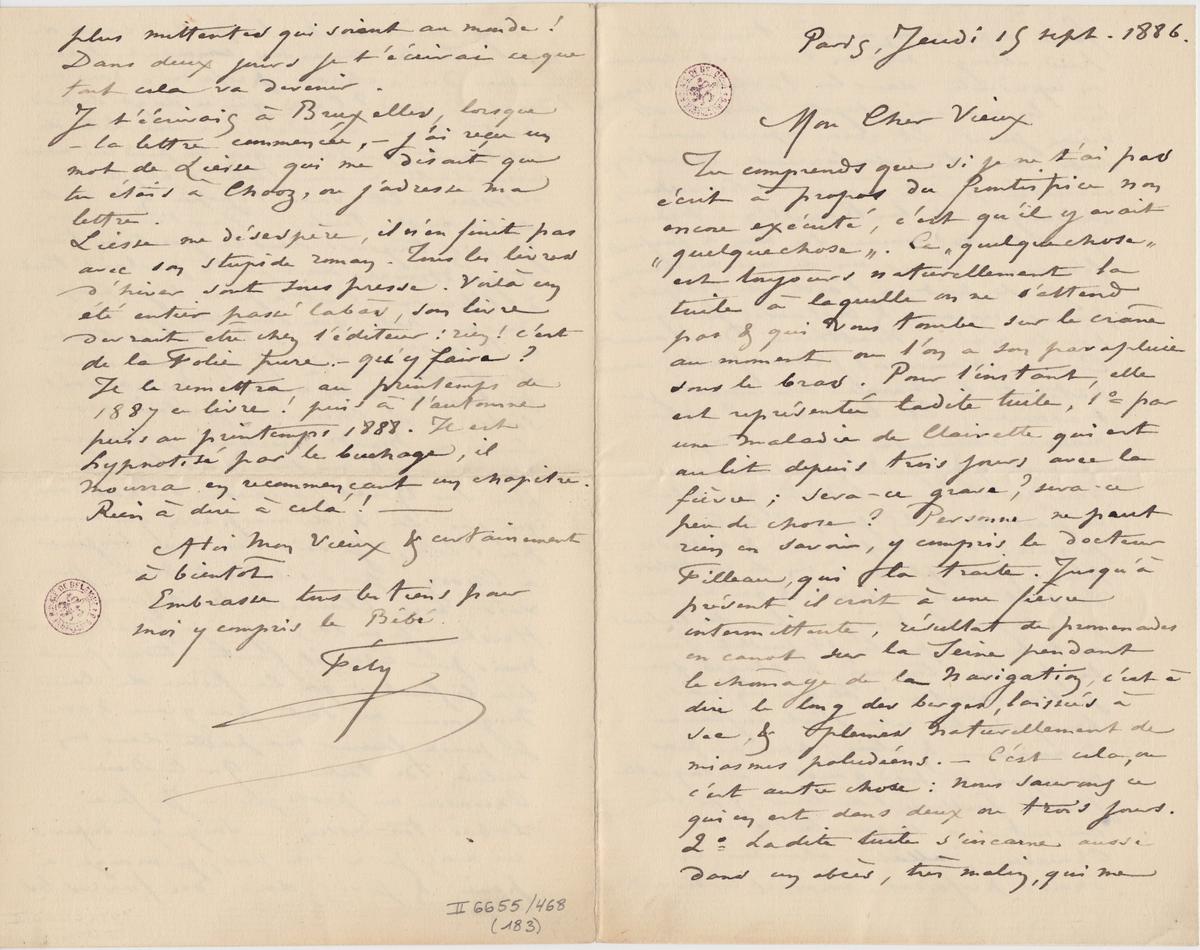 Paris, Jeudi 15 sept. 1886.
Mon Cher Vieux
Tu comprends que si je ne t'ai pas
écrit à propos du Frontispice non
encore exécuté, c'est qu'il y avait
„quelquechose„. Ce „quelquechose„
est toujours naturellement la
tuile à laquelle on ne s'attend
pas & qui vous tombe sur le crâne
au moment ou l'on a son parapluie
sous le bras. Pour l'instant, elle
est représentée ladite tuile, 1º par
une maladie de Clairette qui est
au lit depuis trois jours avec la
fièvre ; sera-ce grave ? sera-ce
peu de chose ? Personne ne peut
rien en savoir, y compris le docteur
Filleau, qui la traite. Jusqu'à
présent il croit à une fièvre
intermittente, résultat de promenades
en canot sur la Seine pendant
le chômage de la Navigation, c'est à
dire le long des berges, laissées à
sec, & pleines naturellement de
miasmes paludéens. – C'est cela, ou
c'est autre chose : nous saurons ce
qui en est dans deux ou trois jours.
2º Ladite tuile s'incarne aussi
dans un abcès, très malin, qui me
plus mittentes qui soient au monde !
Dans deux jours je t'écrirai ce que
tout cela va devenir.
Je t'écrivais à Bruxelles, lorsque
– la lettre commencée, – j'ai reçu un
mot de Liesse qui me disait que
tu étais à Chooz, ou j'adresse ma
lettre.
Liesse me désespère, il n'en finit pas
avec son stupide roman. Tous les livres
d'hiver sont sous presse. Voilà un
été entier passé labas, son livre
devrait etre chez l'éditeur : rien ! c'est
de la Folie pure. – qu'y faire ?
Il le remettra au printemps de
1887 ce livre ! puis à l'automne
puis au printemps 1888. Il est
hypnotisé par le buchage, il
mourra en recommençant un chapitre.
Rien à dire à cela ! —
A toi Mon Vieux & certainement
à bientot
Embrasse tous les tiens pour
moi y compris le Bébé.
Fély
II 6655/468
(183)